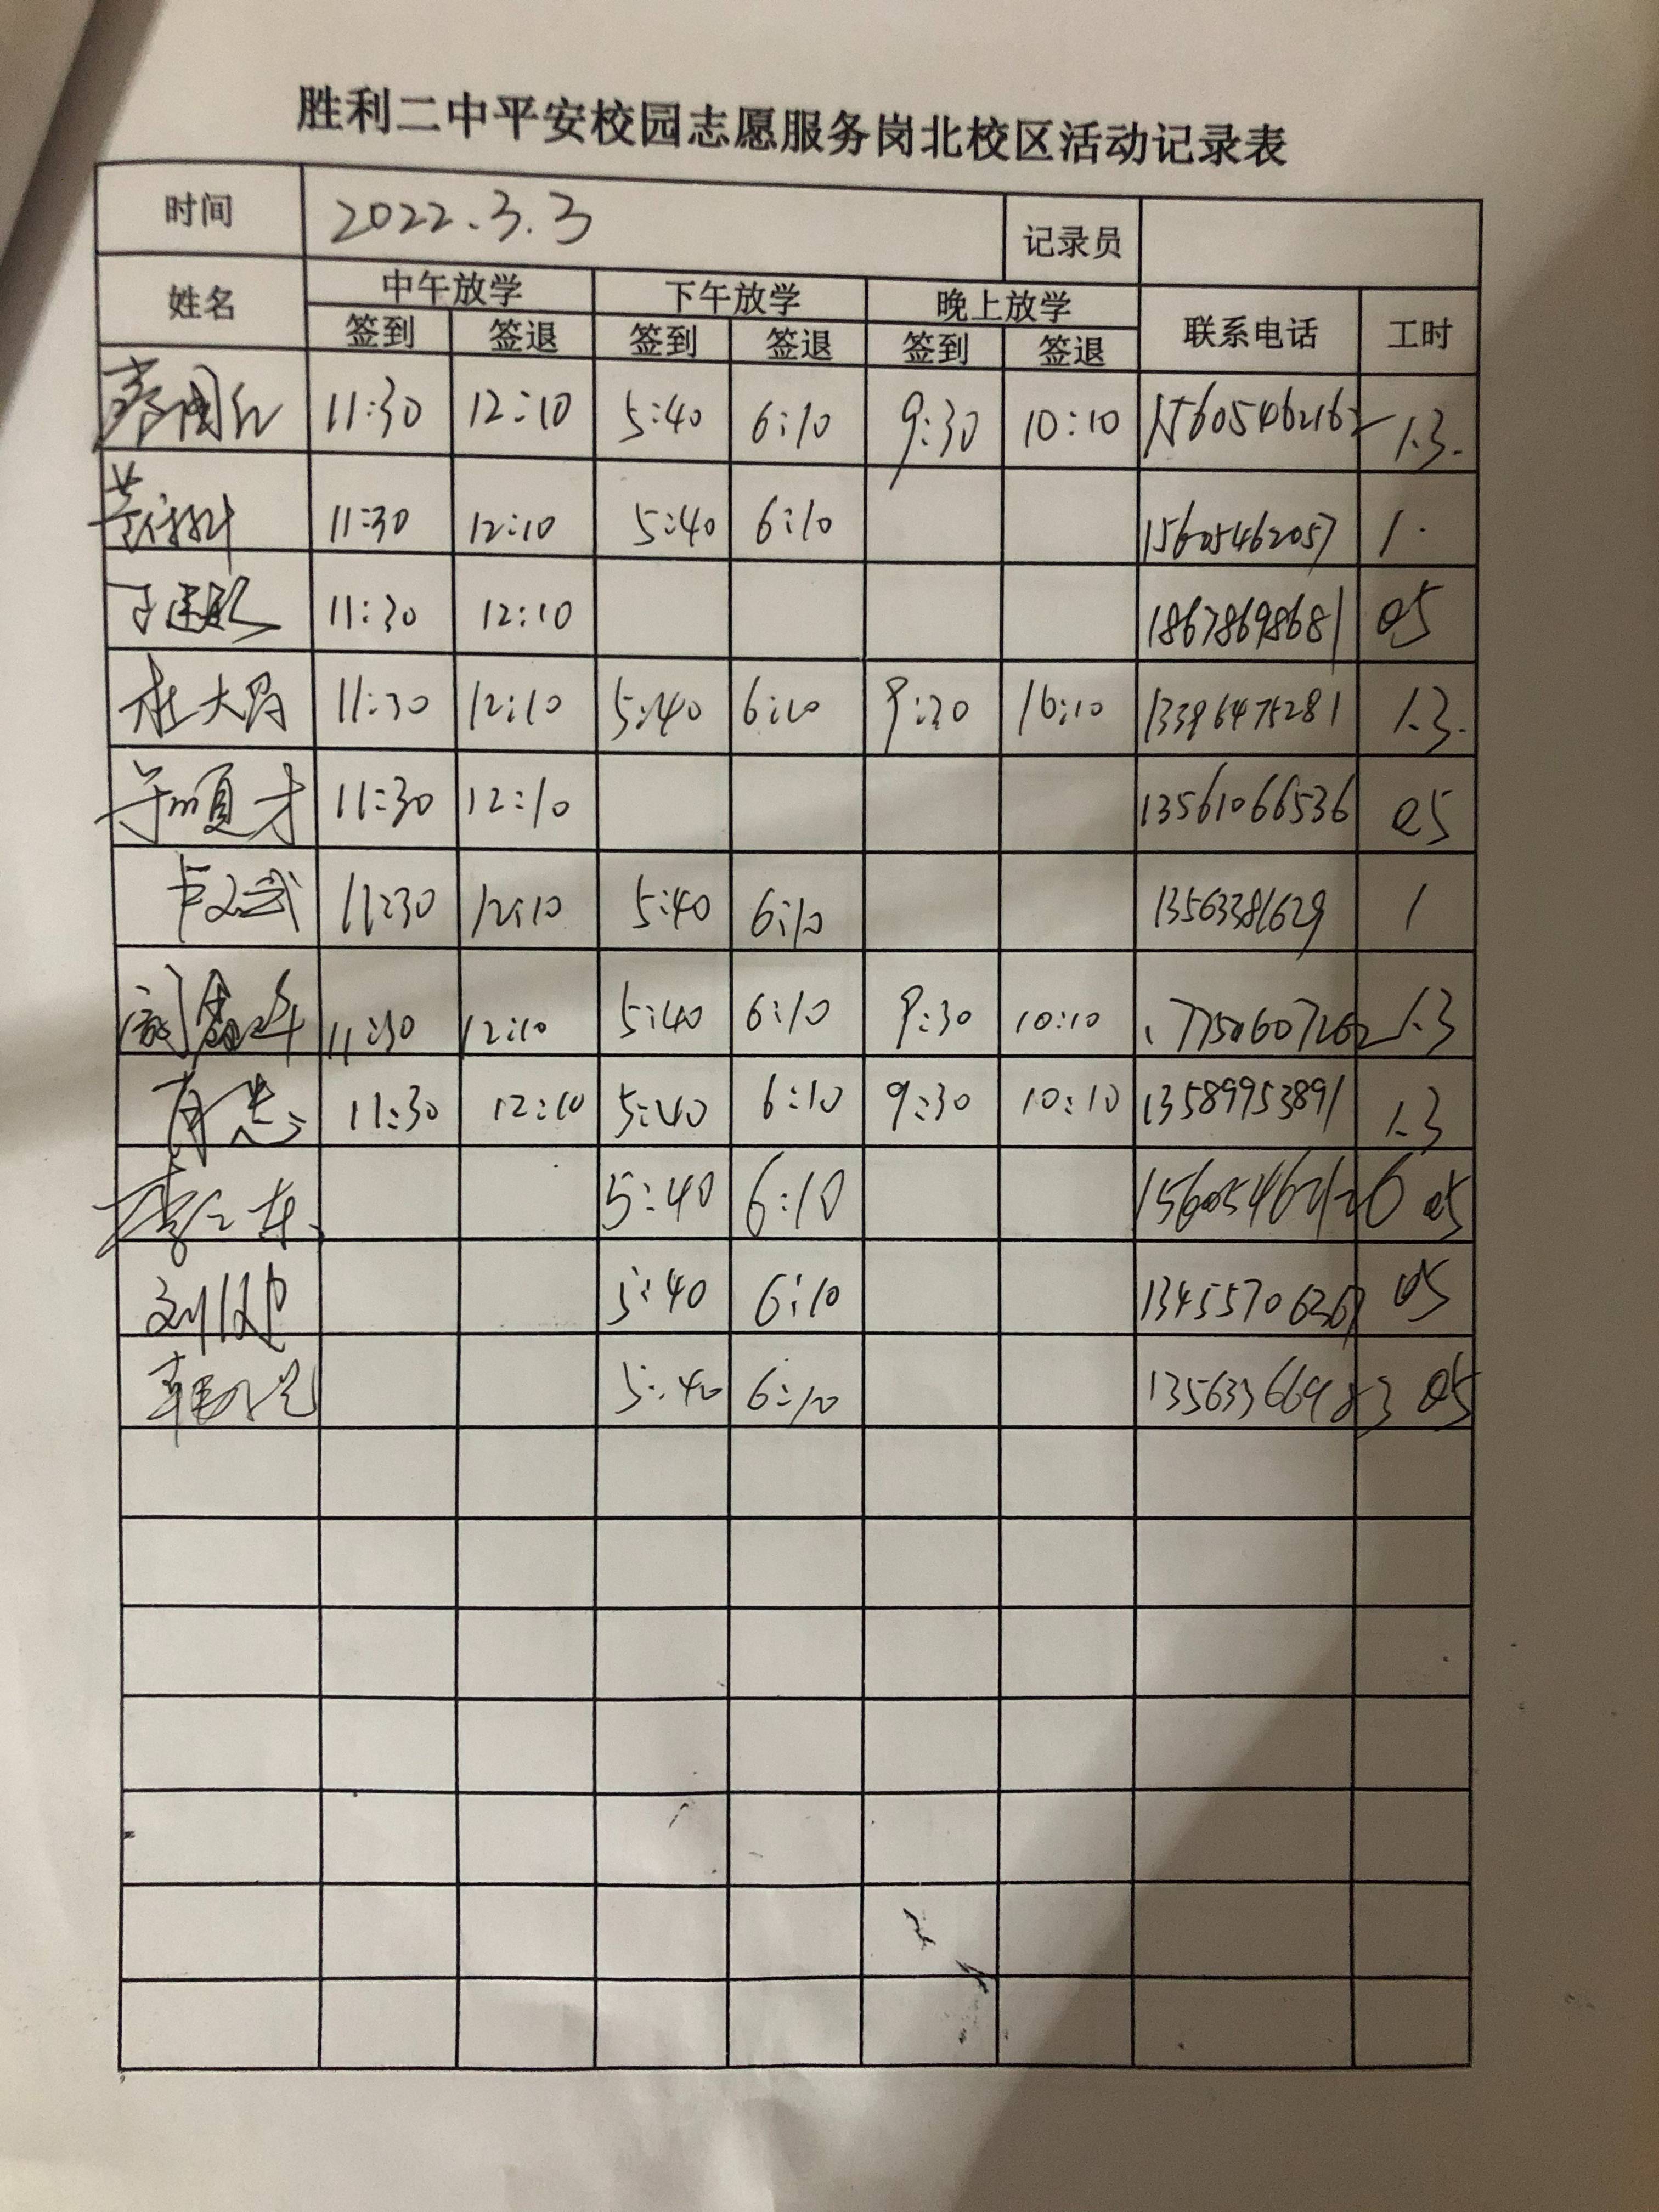 胜利二中平安校园志愿服务岗北校区活动记录表
时间 2022.3.3 记录员
姓名 中午放学 下午放学 晚上放学 联系电话 工时
签到 签退 签到 签退 签到 签退
11:30 12:10 5:40 6:10 9:30 10:10 15605462162 1.3.
11:30 12:10 5:40 6:10 15605462057 1.
11:30 12:10 18678698681 05
杜大昌 11:30 12:10 5:40 6:10 9:30 10:10 13396475281 1.3.
顺才 11:30 12:10 13561066536 05
卢文武 11:30 12:10 5:40 6:10 13563381629 1
11:30 12:10 5:40 6:10 9:30 10:10 1.3
11:30 12:10 5:40 6:10 9:30 10:10 13589953891 1.3
5:40 6:10 15605462126 05
5:40 6:10 05
5:40 6:10 13563366983 05